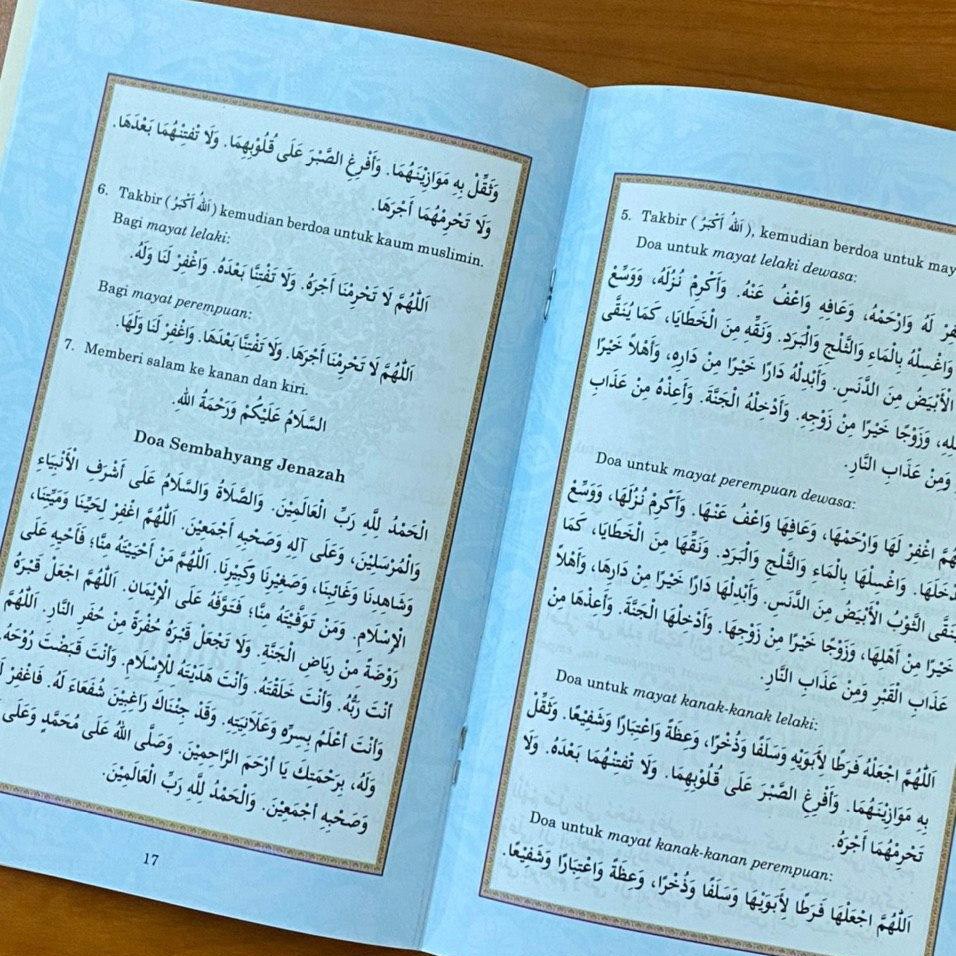 5. Takbir (اَللهُ أَكْبَرُ), kemudian berdoa untuk
Doa untuk mayat lelaki dewasa:
لَهُ وَارْحَمْهُ، وَعَافِهِ وَاعْفُ عَنْهُ. وَأَكْرِمْ نُزُلَهُ، وَوَسِّعْ
وَاغْسِلْهُ بِالْمَاءِ وَالثَّلْجِ وَالْبَرَدِ. وَنَقِّهِ مِنَ الْخَطَايَا، كَمَا يُنَقَّى
الْأَبْيَضُ مِنَ الدَّنَسِ. وَأَبْدِلْهُ دَارًا خَيْرًا مِنْ دَارِهِ، وَأَهْلًا خَيْرًا
وَزَوْجًا خَيْرًا مِنْ زَوْجِهِ. وَأَدْخِلْهُ الْجَنَّةَ. وَأَعِذْهُ مِنْ عَذَابِ
وَمِنْ عَذَابِ النَّارِ.
Doa untuk mayat perempuan dewasa:
اغْفِرْ لَهَا وَارْحَمْهَا، وَعَافِهَا وَاعْفُ عَنْهَا. وَأَكْرِمْ نُزُلَهَا، وَوَسِّعْ
وَاغْسِلْهَا بِالْمَاءِ وَالثَّلْجِ وَالْبَرَدِ. وَنَقِّهَا مِنَ الْخَطَايَا، كَمَا
يُنَقَّى الثَّوْبُ الْأَبْيَضُ مِنَ الدَّنَسِ. وَأَبْدِلْهَا دَارًا خَيْرًا مِنْ دَارِهَا، وَأَهْلًا
خَيْرًا مِنْ أَهْلِهَا، وَزَوْجًا خَيْرًا مِنْ زَوْجِهَا. وَأَدْخِلْهَا الْجَنَّةَ. وَأَعِذْهَا مِنْ
عَذَابِ الْقَبْرِ وَمِنْ عَذَابِ النَّارِ.
Doa untuk mayat kanak-kanak lelaki:
اَللّٰهُمَّ اجْعَلْهُ فَرَطًا لِأَبَوَيْهِ وَسَلَفًا وَذُخْرًا، وَعِظَةً وَاعْتِبَارًا وَشَفِيْعًا. وَثَقِّلْ
بِهِ مَوَازِيْنَهُمَا. وَأَفْرِغِ الصَّبْرَ عَلَى قُلُوْبِهِمَا. وَلَا تَفْتِنْهُمَا بَعْدَهُ. وَلَا
تَحْرِمْهُمَا أَجْرَهُ.
Doa untuk mayat kanak-kanan perempuan:
اَللّٰهُمَّ اجْعَلْهَا فَرَطًا لِأَبَوَيْهَا وَسَلَفًا وَذُخْرًا، وَعِظَةً وَاعْتِبَارًا وَشَفِيْعًا.
وَثَقِّلْ بِهِ مَوَازِيْنَهُمَا. وَأَفْرِغِ الصَّبْرَ عَلَى قُلُوْبِهِمَا. وَلَا تَفْتِنْهُمَا بَعْدَهَا.
وَلَا تَحْرِمْهُمَا أَجْرَهَا.
6. Takbir (اَللهُ أَكْبَرُ) kemudian berdoa untuk kaum muslimin.
Bagi mayat lelaki:
اَللّٰهُمَّ لَا تَحْرِمْنَا أَجْرَهُ. وَلَا تَفْتِنَّا بَعْدَهُ. وَاغْفِرْ لَنَا وَلَهُ.
Bagi mayat perempuan:
اَللّٰهُمَّ لَا تَحْرِمْنَا أَجْرَهَا. وَلَا تَفْتِنَّا بَعْدَهَا. وَاغْفِرْ لَنَا وَلَهَا.
7. Memberi salam ke kanan dan kiri.
السَّلَامُ عَلَيْكُمْ وَرَحْمَةُ اللهِ.
Doa Sembahyang Jenazah
الْحَمْدُ لِلّٰهِ رَبِّ الْعَالَمِيْنَ. وَالصَّلَاةُ وَالسَّلَامُ عَلَى أَشْرَفِ الْأَنْبِيَاءِ
وَالْمُرْسَلِيْنَ، وَعَلَى آلِهِ وَصَحْبِهِ أَجْمَعِيْنَ. اَللّٰهُمَّ اغْفِرْ لِحَيِّنَا وَمَيِّتِنَا،
وَشَاهِدِنَا وَغَائِبِنَا، وَصَغِيْرِنَا وَكَبِيْرِنَا. اَللّٰهُمَّ مَنْ أَحْيَيْتَهُ مِنَّا؛ فَأَحْيِهِ عَلَى
الْإِسْلَامِ. وَمَنْ تَوَفَّيْتَهُ مِنَّا؛ فَتَوَفَّهُ عَلَى الْإِيْمَانِ. اَللّٰهُمَّ اجْعَلْ قَبْرَهُ
رَوْضَةً مِنْ رِيَاضِ الْجَنَّةِ. وَلَا تَجْعَلْ قَبْرَهُ حُفْرَةً مِنْ حُفَرِ النَّارِ. اَللّٰهُمَّ
أَنْتَ رَبُّهُ. وَأَنْتَ خَلَقْتَهُ. وَأَنْتَ هَدَيْتَهُ لِلْإِسْلَامِ. وَأَنْتَ قَبَضْتَ رُوْحَهُ.
وَأَنْتَ أَعْلَمُ بِسِرِّهِ وَعَلَانِيَتِهِ. وَقَدْ جِئْنَاكَ رَاغِبِيْنَ شُفَعَاءَ لَهُ. فَاغْفِرْ
وَلَهُ، بِرَحْمَتِكَ يَا أَرْحَمَ الرَّاحِمِيْنَ. وَصَلَّى اللهُ عَلَى مُحَمَّدٍ وَعَلَى
وَصَحْبِهِ أَجْمَعِيْنَ. وَالْحَمْدُ لِلّٰهِ رَبِّ الْعَالَمِيْنَ.
17